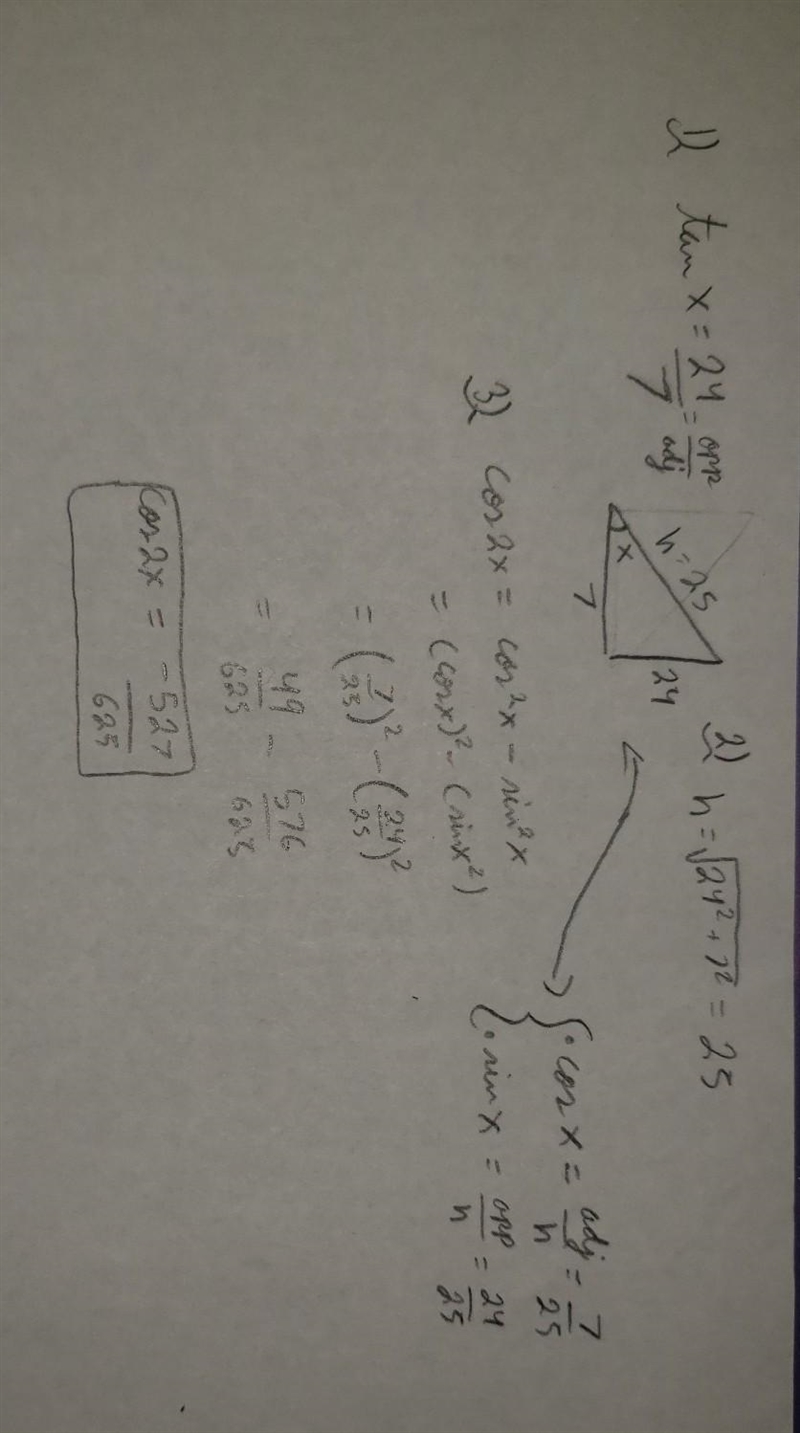 1) tan x = 24/7 = opp/adj
h = 25
x
24
7
2) h = √(24² + 7²) = 25
{ • cos x = adj/h = 7/25
• sin x = opp/h = 24/25
3) cos 2x = cos²x - sin²x
= (cos x)² - (sin x²)
= (7/25)² - (24/25)²
= 49/625 - 576/625
cos 2x = -527/625